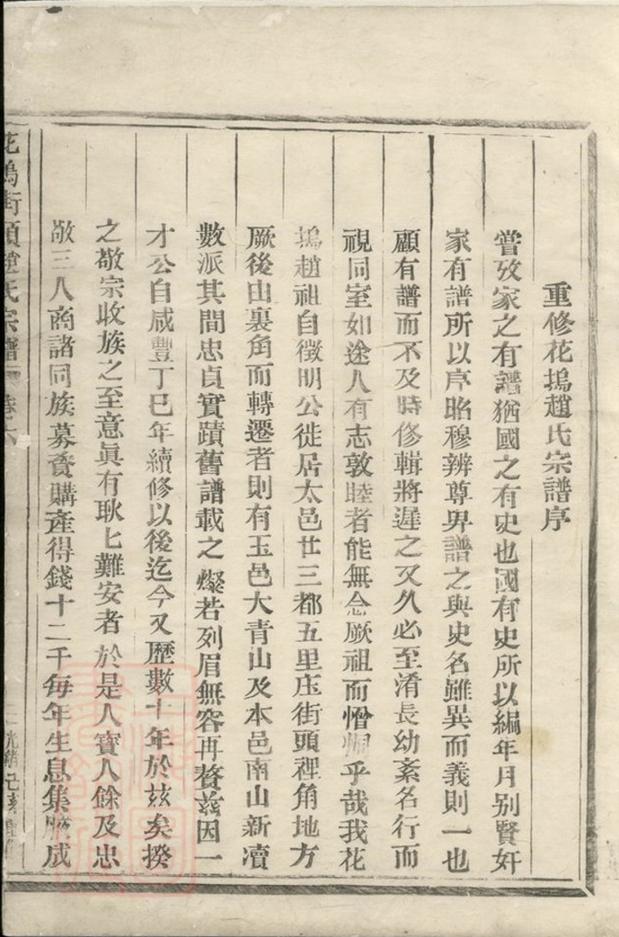 重修花塢趙氏宗譜序
嘗攷家之有譜猶國之有史也國有史所以編年月别賢奸
家有譜所以序昭穆辨尊卑譜之與史名雖異而義則一也
顧有譜而不及時修輯將遲之又久必至淆長幼紊名行而
視同室如途人有志敦睦者能無念厥祖而憯恫乎哉我花
塢趙祖自徵明公徙居太邑廿三都五里庄街頭裡角地方
厥後由裏角而轉遷者則有玉邑大青山及本邑南山新凟
數派其間忠貞實蹟舊譜載之燦若列眉無容再贅茲因一
才公自咸豐丁巳年續修以後迄今又歷數十年於兹矣揆
之敬宗收族之至意眞有耿匕難安者於是人寳人餘及忠
敬三人商諸同族募資購產得錢十二千每年生息集腋成
花塢街頭趙氏宗譜 卷之
光緒己亥重修